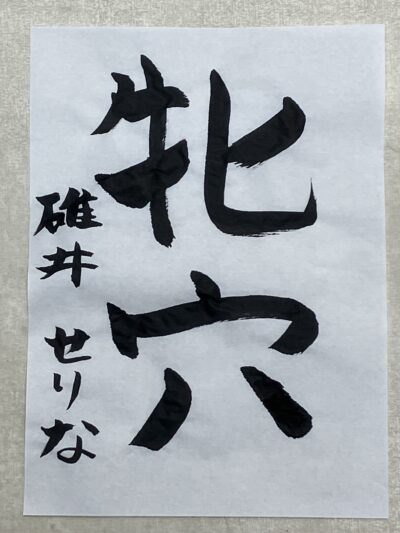 牝穴
碓井 せりな